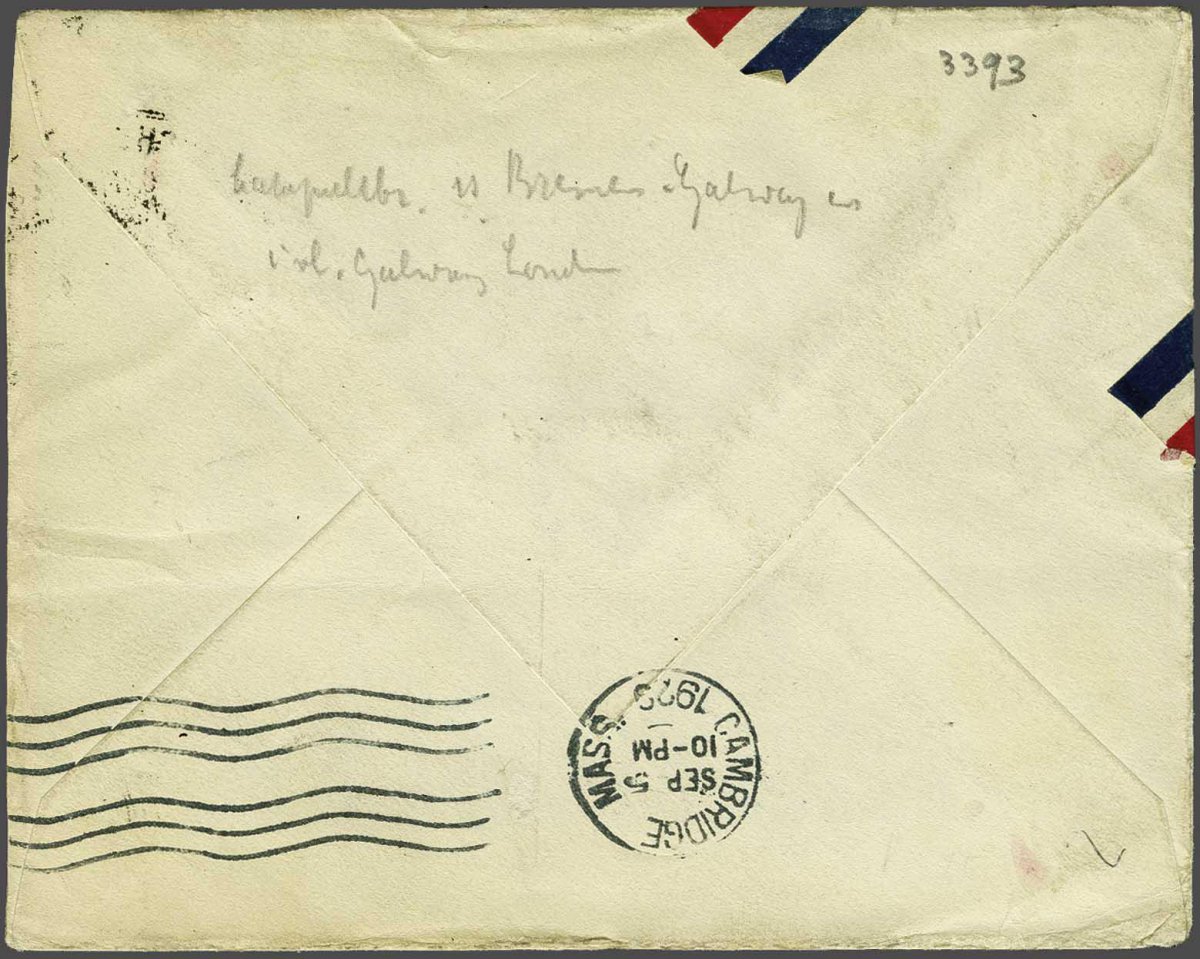 3393
Bremen. Galway
Galway London
CAMBRIDGE
MASS.
SEP 5
10-PM
1929